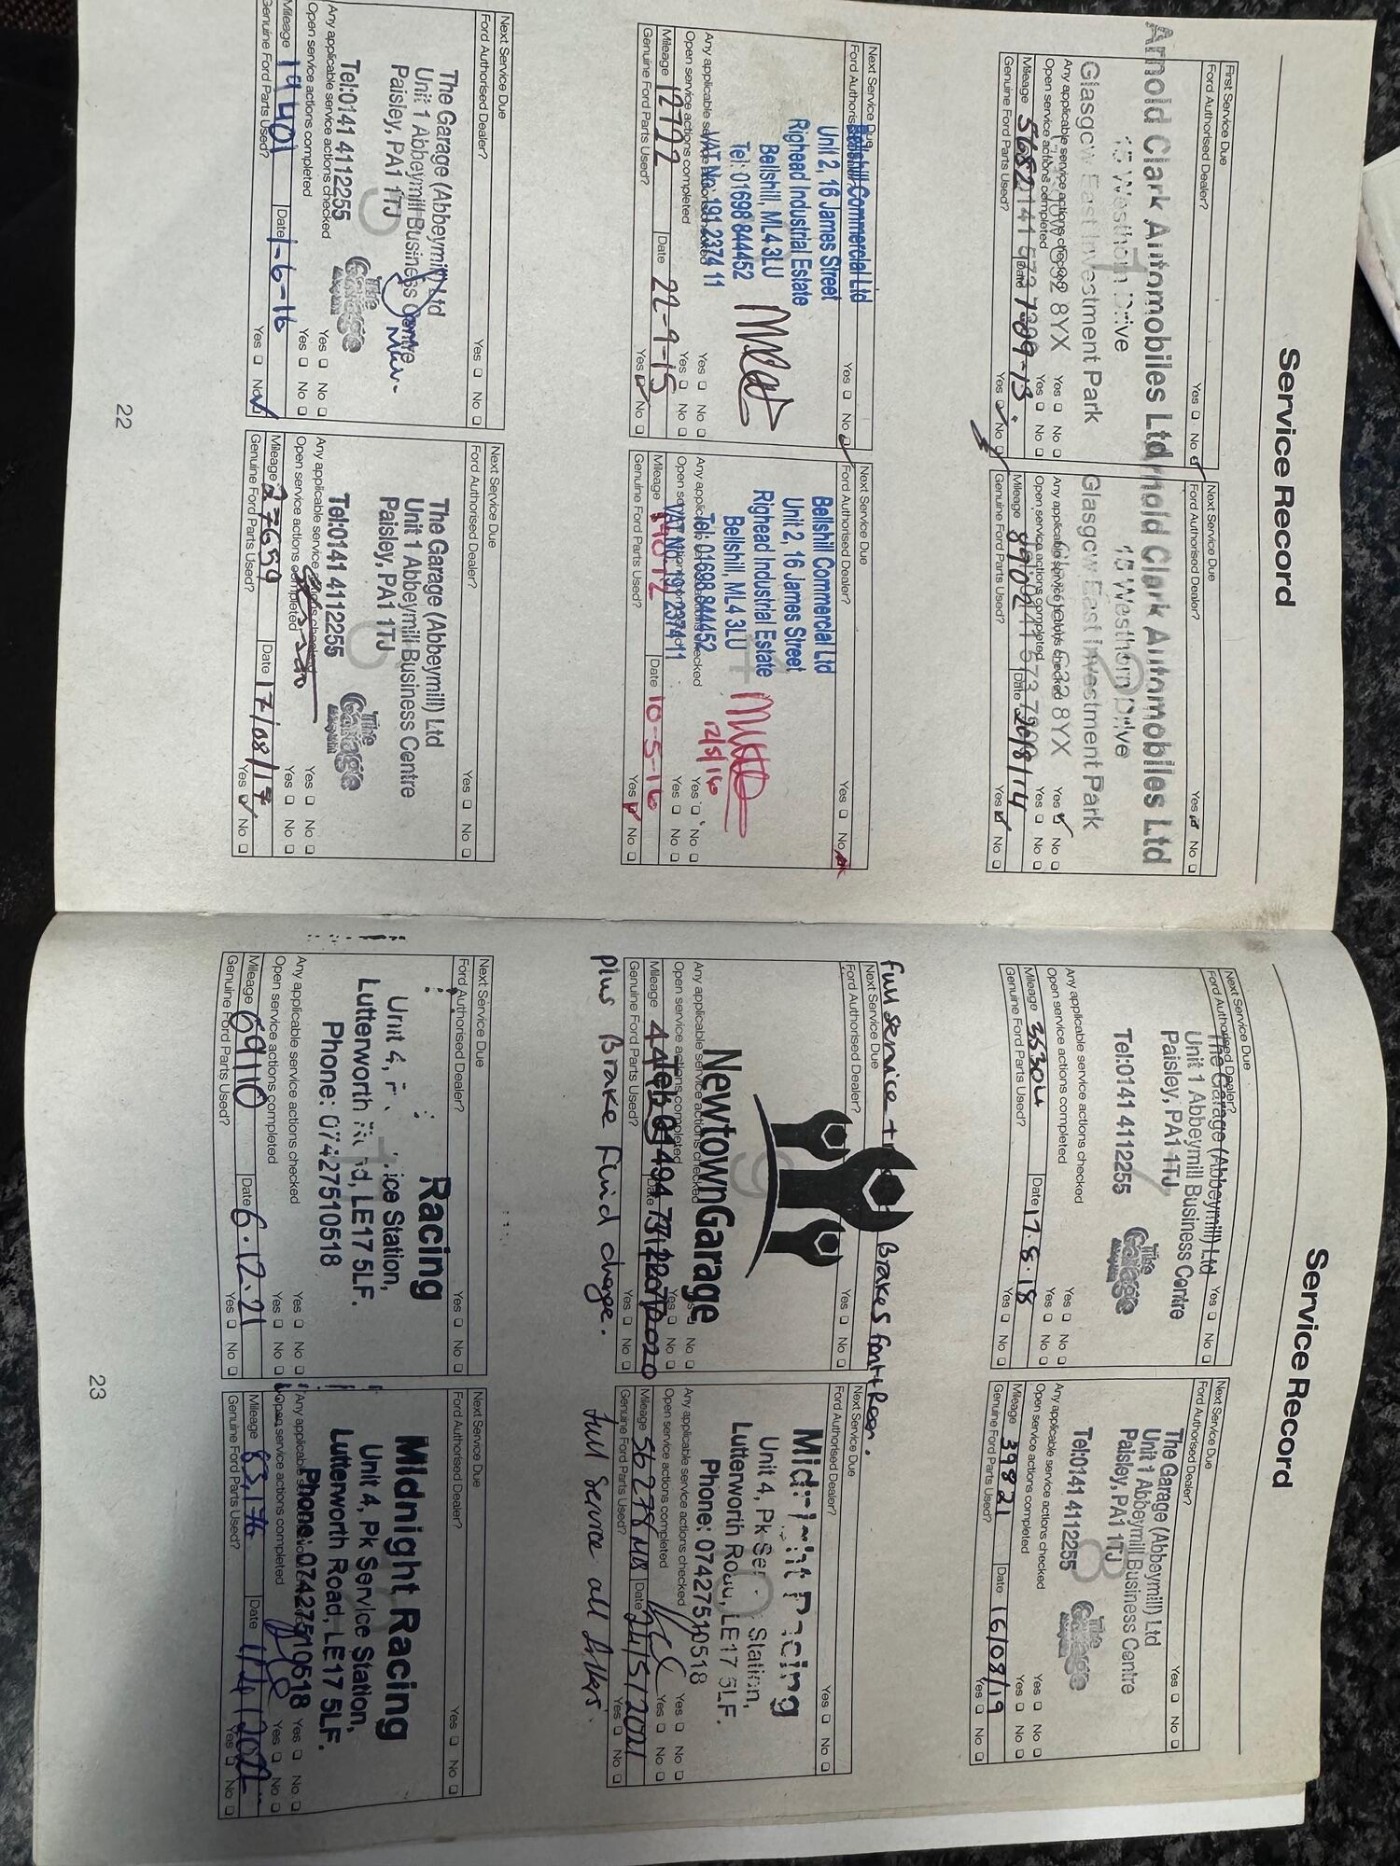 Service Record
First Service Due
Ford Authorised Dealer?
Yes No
Arnold Clark Automobiles Ltd
15 Westhorn Drive
Glasgow East Investment Park
Any applicable service actions checked Yes No
Open service actions completed Yes No
Mileage 5682 Date
Genuine Ford Parts Used? Yes No
Next Service Due
Ford Authorised Dealer?
Yes No
Arnold Clark Automobiles Ltd
15 Westhorn Drive
Glasgow East Investment Park
Any applicable service actions checked Yes No
Open service actions completed Yes No
Mileage Date
Genuine Ford Parts Used? Yes No
Next Service Due
Ford Authorised Dealer?
Yes No
Bellshill Commercial Ltd
Unit 2, 16 James Street
Righead Industrial Estate
Bellshill, ML4 3LU
Tel: 01698 844452
VAT No. 191 2374 11
Any applicable service actions checked Yes No
Open service actions completed Yes No
Mileage 12722 Date 22-9-15
Genuine Ford Parts Used? Yes No
Next Service Due
Ford Authorised Dealer?
Yes No
Bellshill Commercial Ltd
Unit 2, 16 James Street
Righead Industrial Estate
Bellshill, ML4 3LU
Tel: 01698 844452
VAT No. 191 2374 11
12/5/16
Any applicable service actions checked Yes No
Open service actions completed Yes No
Mileage Date 10-5-16
Genuine Ford Parts Used? Yes No
Next Service Due
Ford Authorised Dealer?
Yes No
The Garage (Abbeymill) Ltd
Unit 1 Abbeymill Business Centre
Paisley, PA1 1TJ
Tel:0141 4112255
The Garage
Any applicable service actions checked Yes No
Open service actions completed Yes No
Mileage 19401 Date 1-6-16
Genuine Ford Parts Used? Yes No
Next Service Due
Ford Authorised Dealer?
Yes No
The Garage (Abbeymill) Ltd
Unit 1 Abbeymill Business Centre
Paisley, PA1 1TJ
Tel:0141 4112255
The Garage
Any applicable service actions checked Yes No
Open service actions completed Yes No
Mileage 27659 Date 17/08/17
Genuine Ford Parts Used? Yes No
22
Service Record
Next Service Due
Ford Authorised Dealer?
Yes No
The Garage (Abbeymill) Ltd
Unit 1 Abbeymill Business Centre
Paisley, PA1 1TJ
Tel:0141 4112255
The Garage
Any applicable service actions checked Yes No
Open service actions completed Yes No
Mileage 35304 Date 17.8.18
Genuine Ford Parts Used? Yes No
Next Service Due
Ford Authorised Dealer?
Yes No
8
The Garage (Abbeymill) Ltd
Unit 1 Abbeymill Business Centre
Paisley, PA1 1TJ
Tel:0141 4112255
The Garage
Any applicable service actions checked Yes No
Open service actions completed Yes No
Mileage 39821 Date 16/08/19
Genuine Ford Parts Used? Yes No
Full service + Brakes font + Rear.
Next Service Due
Ford Authorised Dealer?
Yes No
9
NewtownGarage
Any applicable service actions checked Yes No
Open service actions completed Yes No
Mileage Date
Genuine Ford Parts Used? Yes No
plus Brake Fluid change.
Next Service Due
Ford Authorised Dealer?
Yes No
Midnight Racing
Unit 4, Pk Ser Station,
Lutterworth Road, LE17 5LF.
Phone: 07427510518
Any applicable service actions checked Yes No
Open service actions completed Yes No
Mileage 56278 Date 24/5/2021
Genuine Ford Parts Used? Yes No
full Service all filters.
Next Service Due
Ford Authorised Dealer?
Yes No
Racing
Unit 4, ice Station,
Lutterworth d, LE17 5LF.
Phone: 07427510518
Any applicable service actions checked Yes No
Open service actions completed Yes No
Mileage 69110 Date 6.12.21
Genuine Ford Parts Used? Yes No
Next Service Due
Ford Authorised Dealer?
Yes No
MIdnight Racing
Unit 4, Pk Service Station,
Lutterworth Road, LE17 5LF.
Phone: 07427510518
Any applicable service actions checked Yes No
Open service actions completed Yes No
Mileage 83,176 Date
Genuine Ford Parts Used? Yes No
23